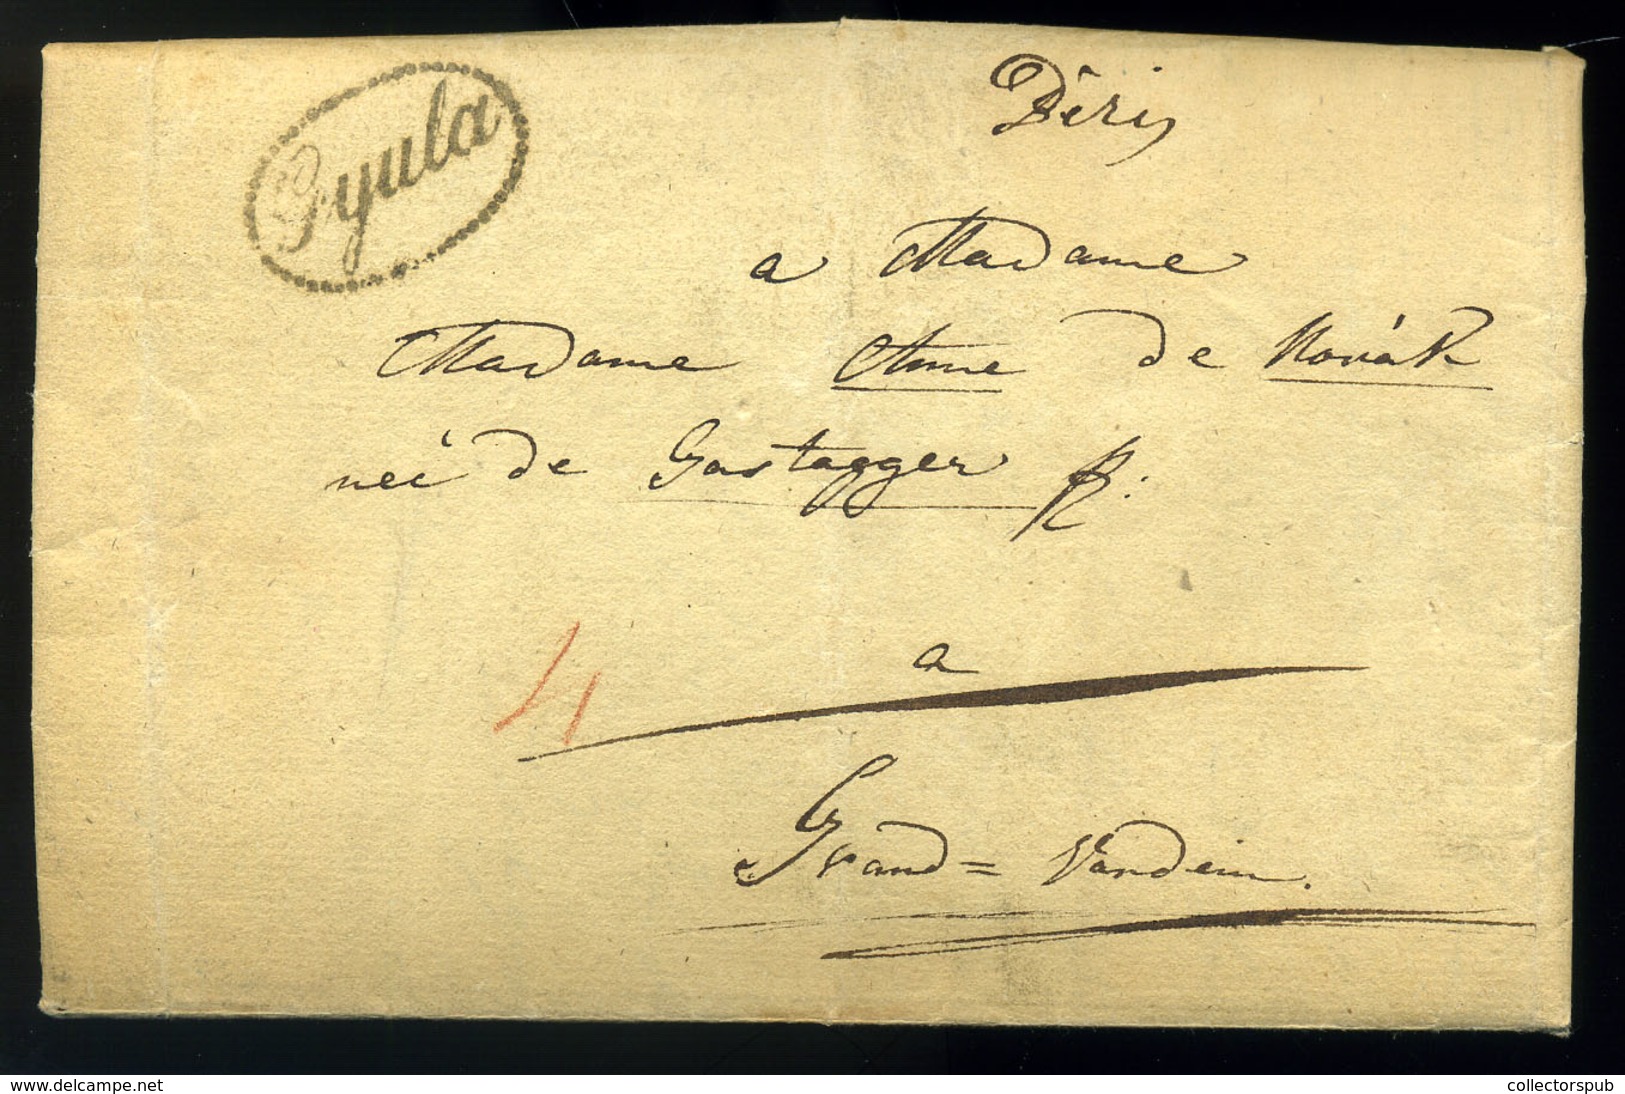 Gyula
a Madame
Madame Anne de Novák
neé de Gastagger
4
a
Grand= Vardein.
www.delcampe.net
collectorspub